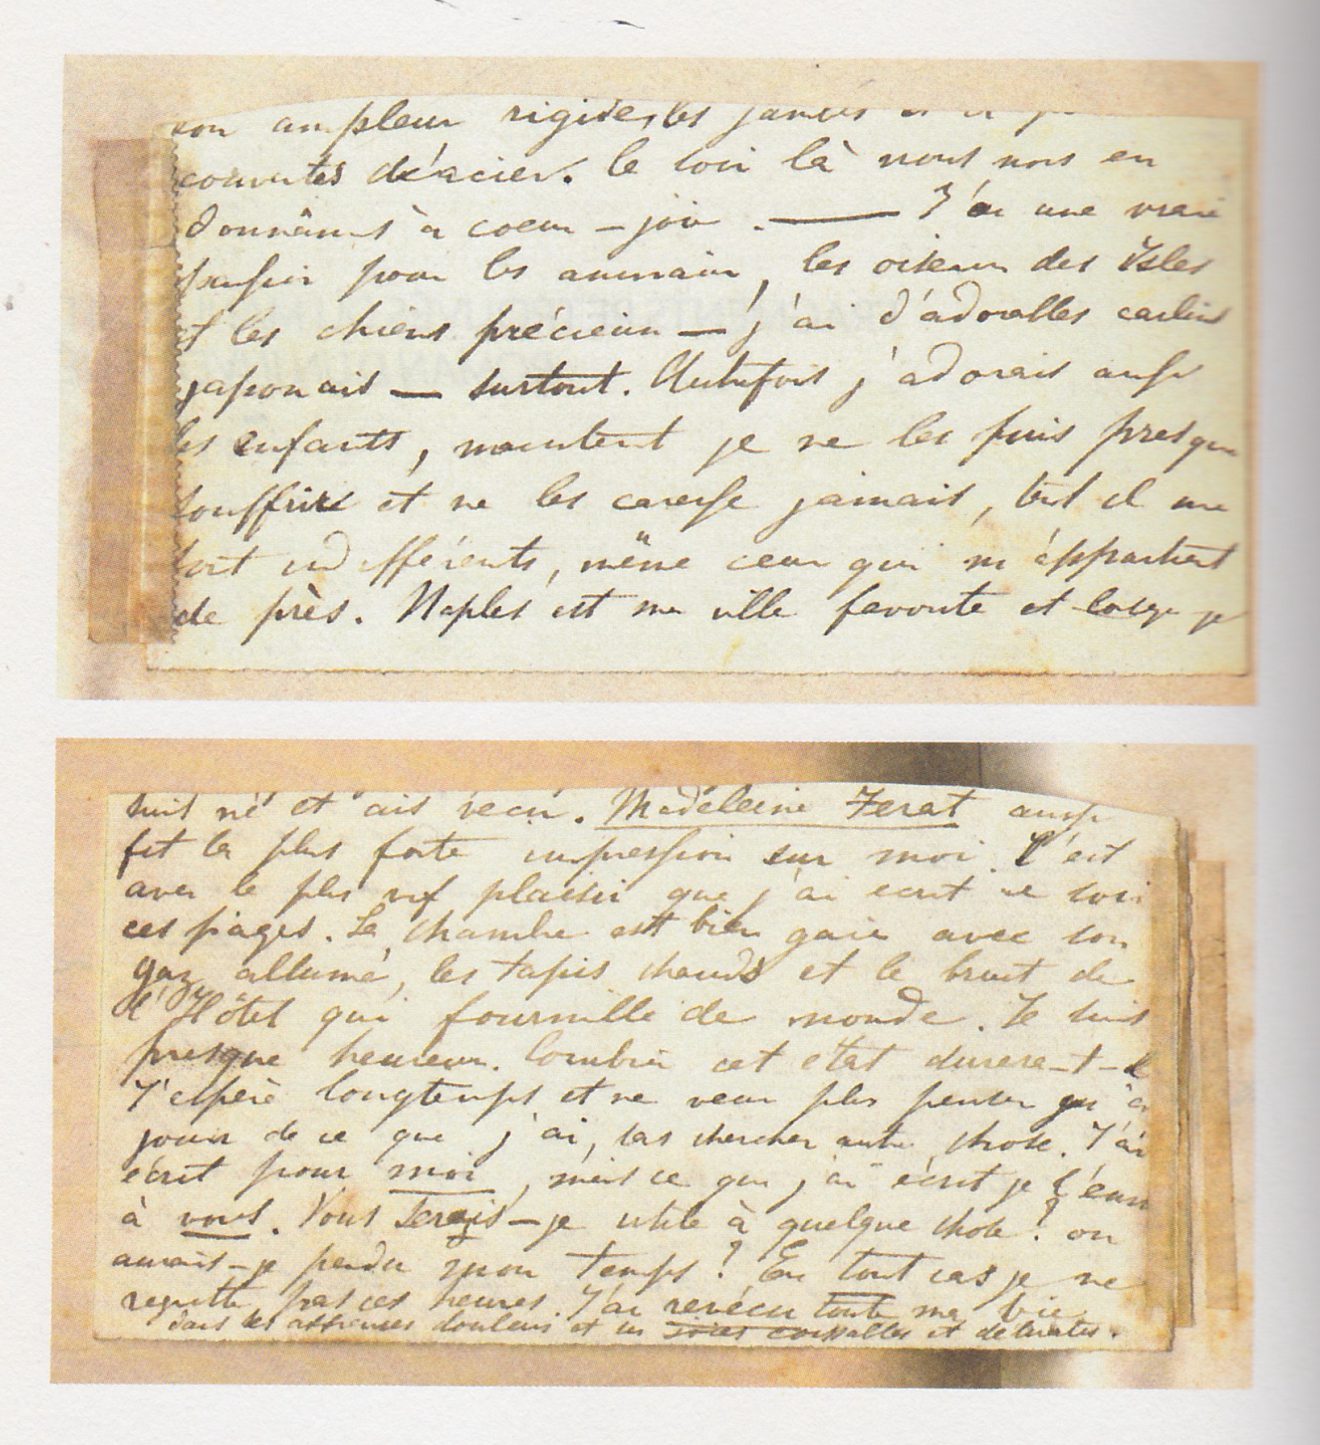 son ampleur rigide, les jambes et la
couvertes d'acier. Ce soir là nous nous en
donnâmes à coeur-joie. — J'ai une vraie
passion pour les animaux, les oiseaux des Isles
et les chiens précieux — j'ai d'adorables carlins
japonais — surtout. Autrefois j'adorais aussi
les enfants, maintent je ne les puis presque
souffrir et ne les caresse jamais, tant il me
sont indifférents, même ceux qui m'appartient
de près. Naples est ma ville favorite et lorsque je
suis né et ais vécu. Madeleine Ferat aussi
fit la plus forte impression sur moi. C'est
avec le plus vif plaisir que j'ai ecrit ce soir
ces pages. La chambre est bien gaie avec son
gaz allumé, les tapis chauds et le bruit de
l'Hôtel qui fourmille de monde. Je suis
presque heureux. Combien cet etat durera-t-il
J'espère longtemps et ne veux plus penser qu'à
jouir de ce que j'ai, sas chercher autre chose. J'ai
écrit pour moi, mais ce que j'ai écrit je l'envoie
à vous. Vous serais-je utile à quelque chose? ou
aurais-je perdu mon temps? En tout cas je ne
regrette pas ces heures. J'ai revécu toute ma vie
dans les affreuses douleurs et les joies et delirantes.